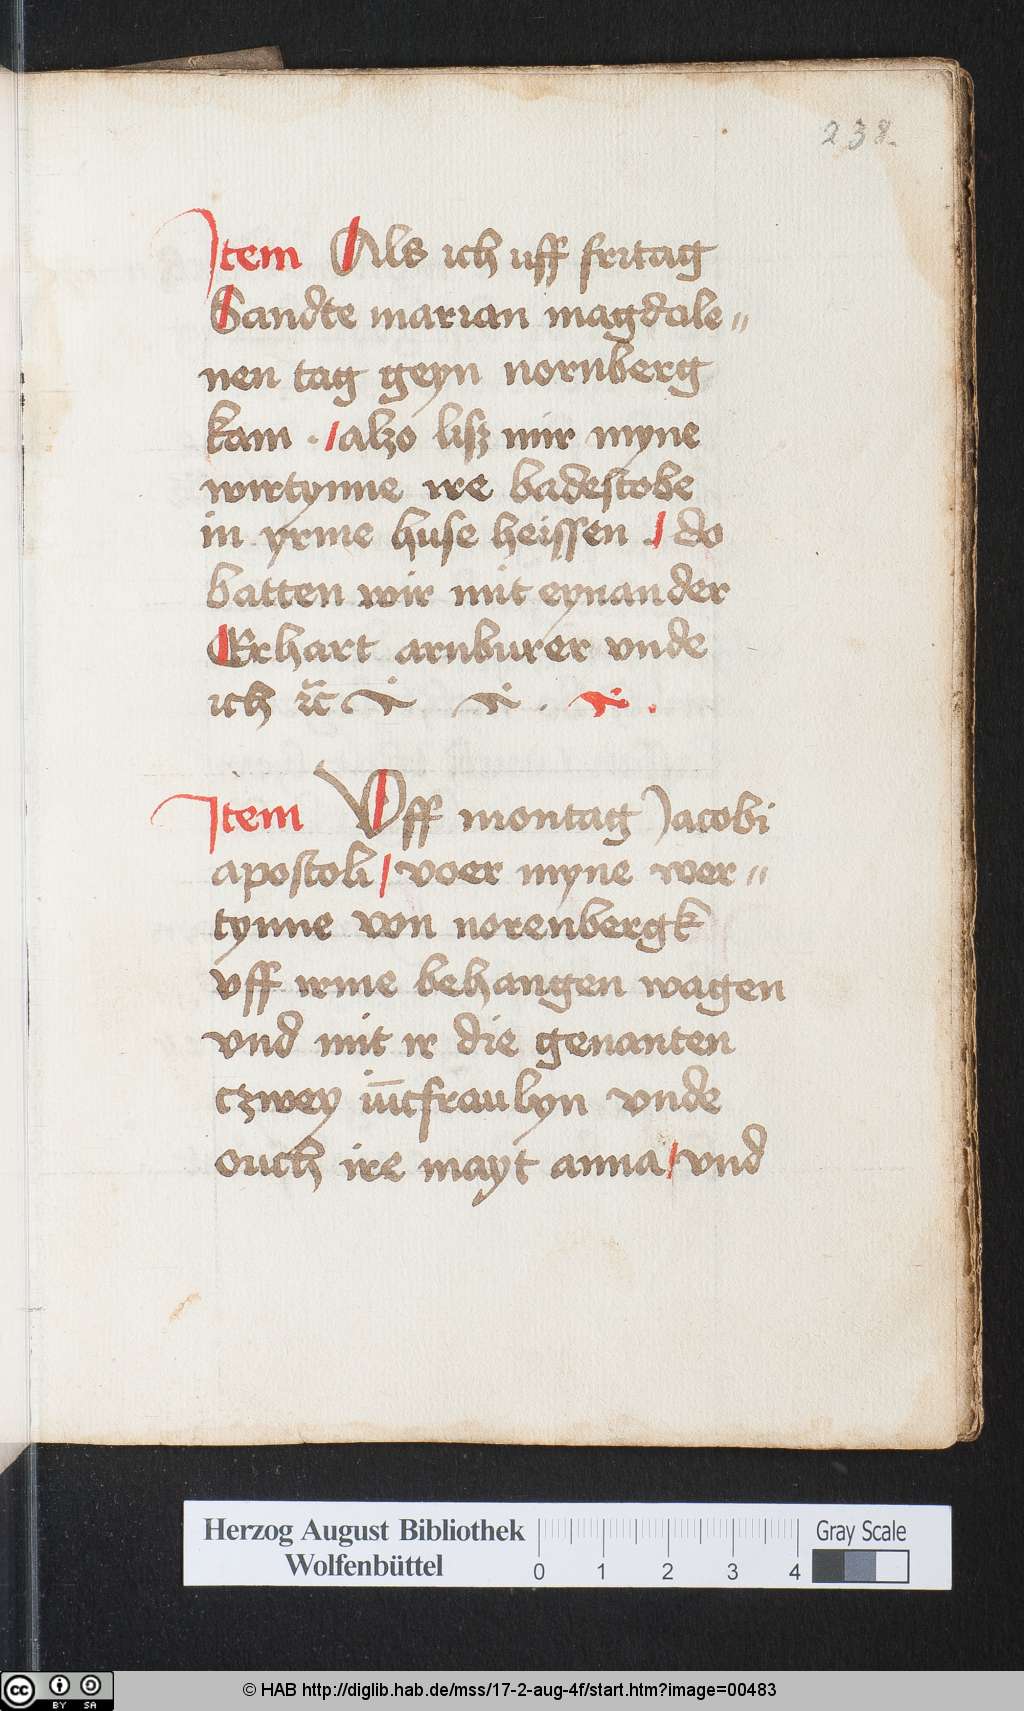 238.
Item Als ich uff fritag
Sandte marian magdale〃
nen tag geyn nornberg
kam . / alzo lisz mir myne
wirtynne ire badestobe
in yrme huse heissen ./ do
batten wir mit eynander
Erhart arnburer vnde
ich ꝛc̃
Item Vff montag Jacobi
apostoli / voer myne wer〃
tynne von norenbergk
vff irme behangen wagen
vnd mit ir die genanten
czwey iūcfraulyn vnde
ouch ire mayt anna / vnd
Herzog August Bibliothek
Wolfenbüttel
0 1 2 3 4
Gray Scale
cc BY SA
© HAB http://diglib.hab.de/mss/17-2-aug-4f/start.htm?image=00483